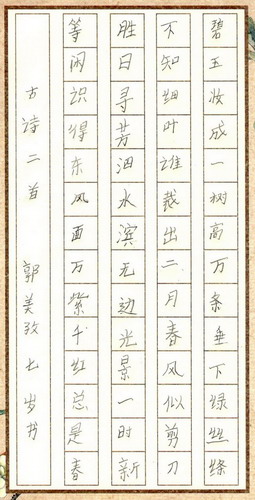 碧玉妆成一树高万条垂下绿丝绦
不知细叶谁裁出二月春风似剪刀
胜日寻芳泗水滨无边光景一时新
等闲识得东风面万紫千红总是春
古诗二首 郭美孜七岁书